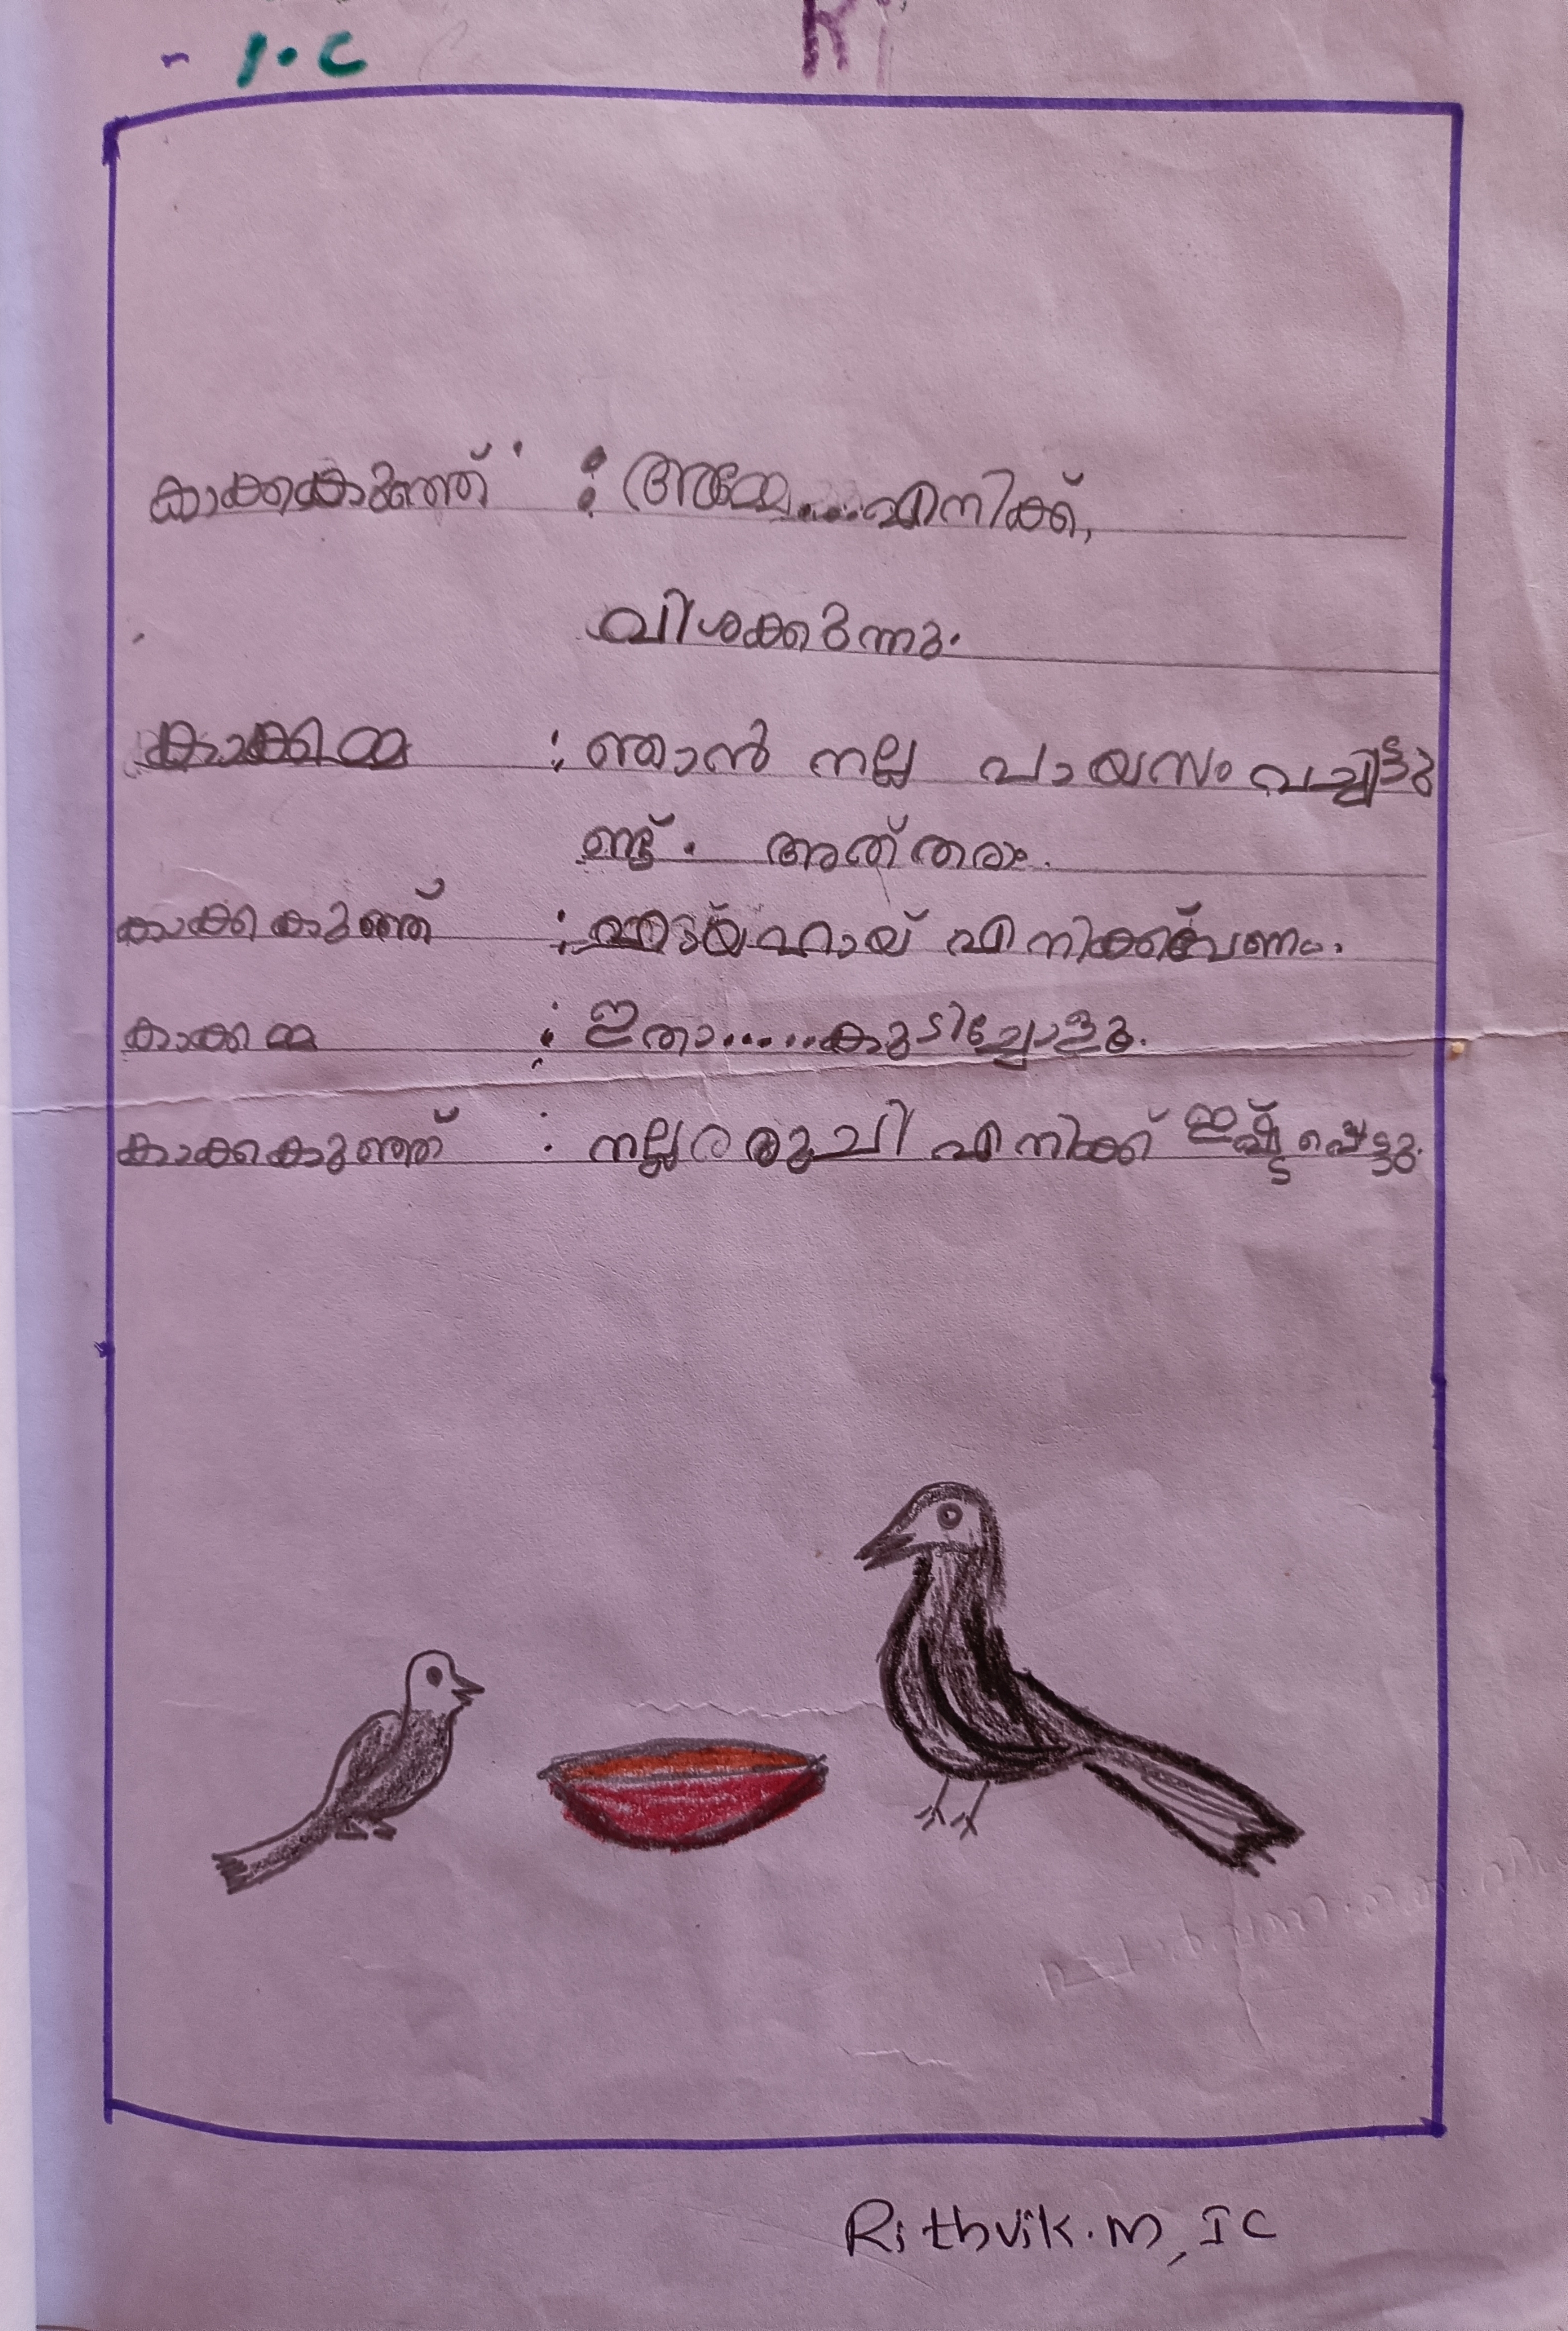 1.C
കാക്കകുഞ്ഞ് : അമ്മേ....എനിക്ക്,
വിശക്കുന്നു.
കാക്കമ്മ : ഞാൻ നല്ല പായസം വച്ചിട്ടു
ണ്ട്. അത് തരാം.
കാക്കകുഞ്ഞ് : ഹായ് എനിക്ക് വേണം.
കാക്കമ്മ : ഇതാ......കുടിച്ചോളൂ.
കാക്കകുഞ്ഞ് : നല്ല രുചി എനിക്ക് ഇഷ്ട്ടപ്പെട്ടു.
Rithvik.M, I C